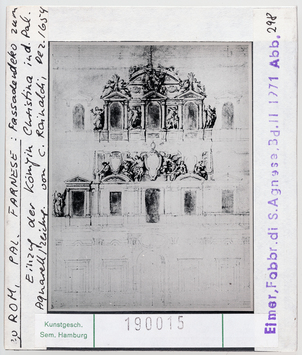 ROM, PAL. FARNESE: Fassadendeko zum
Einzug der Königin Christina ind. Pal.
Aquarell/Zeichg. von C. Rainaldi, Dez. 1654
298
Eimer, Fabbr. di S. Agnese, Bd. II 1971 Abb.
Kunstgesch.
Sem. Hamburg
190015